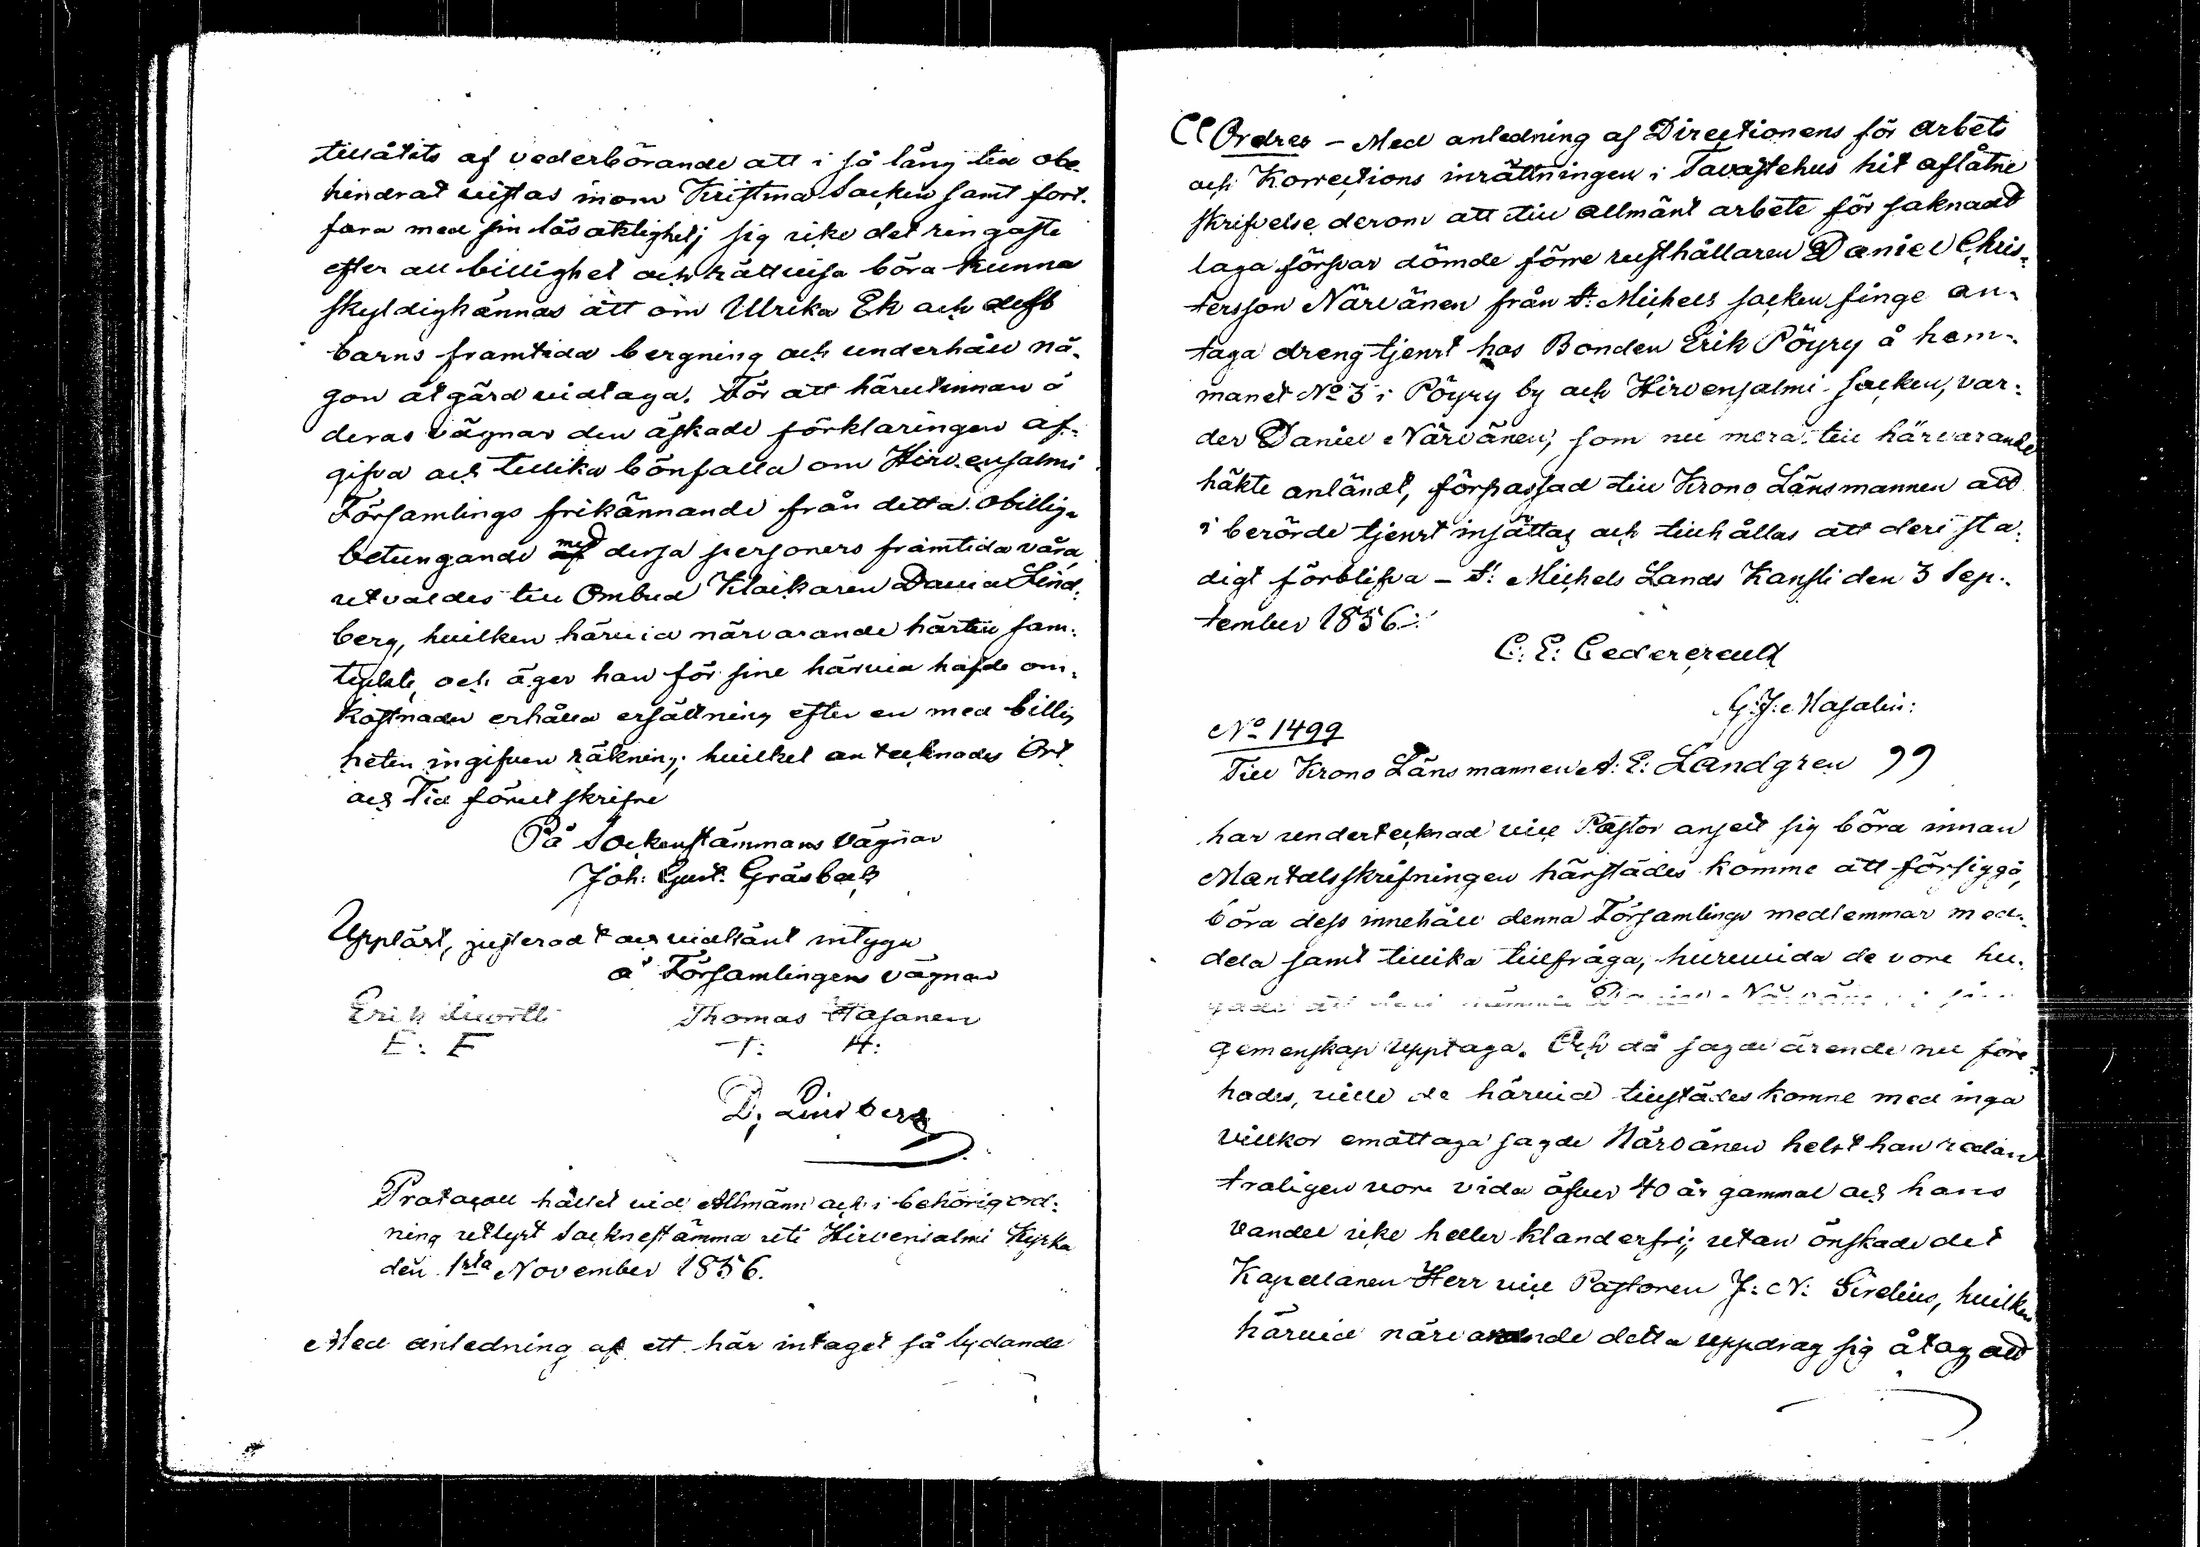 tillåtits af vederbörande att i så lång tid obe-
hindrat vistas inom Kristina Socken samt fort-
fara med sin lösaktighet; sig icke det ringaste
efter all billighet och rättvisa böra kunna
skyldigkännas att om Ulrika Ek och dess
barns framtida bergning och underhåll nå-
gon åtgärd vidtaga. För att härutinnan å
deras vägnar den äskade förklaringen af-
gifva och tillika bönfalla om Hirvensalmi
Församlings frikännande från detta obillig-
betungande med dessa personers framtida våra
utvaldes till Ombud Klockaren David Lind-
berg, hvilken härvid närvarande härtill sam-
tyckte, och äger han för sine härvid hafde om-
kostnader erhålla ersättning efter en med billig
heten ingifven räkning; hvilket antecknades Ort
och Tid förutskrifne
På Sockenstämmans vägnar
Joh: Gust: Gråsbeck
Uppläst, justeradt och vidkänt intyga
å Församlingens vägnar
Erik
E: F
Thomas Hasanen
T: H:
D. Lindberg
Protocoll hållet vid Allmänn och i behörig ord-
ning utlyst Socknestämma uti Hirvensalmi Kyrka
den 1sta November 1856.
Med anledning af ett här intaget så lydande
CC Ordres – Med anledning af Directionens för arbets
och Korrections inrättningen i Tavastehus hit aflåtne
skrifvelse derom att till allmänt arbete för saknadt
laga försvar dömde förre rusthållaren Daniel Chris-
tersson Närvänen från S:t Michels socken finge an-
taga drengtjenst hos Bonden Erik Pöyry å hem-
manet No 3 i Pöyry by och Hirvensalmi Socken, var-
der Daniel Närvänen, som nu mera till härvarande
häkte anländt, förpassad till Krono Länsmannen att
i berörde tjenst insättas och tillhållas att deri sta-
digt förblifva – S:t Michels Lands Kansli den 3 Sep-
tember 1856.
C: E: Cedercreutz
G: J: Hasalin:
No 1499
Till Krono Länsmannen A: E: Landgren ”
har undertecknad vice Pastor ansett sig böra innan
Mantalsskrifningen härstädes komme att försiggå,
böra dess innehåll denna Församlings medlemmar med-
dela samt tillika tillfråga, huruvida de vore hu-
gemenskap upptaga. Och då sagde ärende nu före-
hades, ville de härvid tillstädeskomne med inga
villkor emottaga sagde Närvänen helst han redan
troligen vore vida öfver 40 år gammal och hans
vandel icke heller klanderfri; utan önskade det
Kapellanen Herr vice Pastoren J: N: Sirelius, hvilken
härvid närvarande detta uppdrag sig åtog att